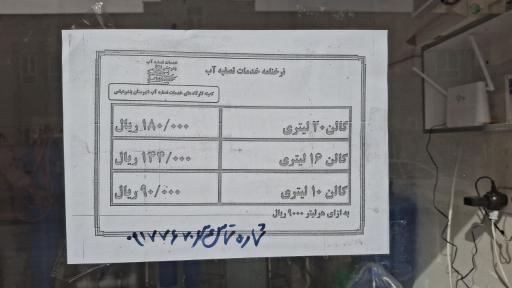 خدمات تصفیه آب
نرخنامه خدمات تصفیه آب
کمیته کارگاه های خدمات تصفیه آب شهرستان بندردیلم
گالن ۲۰ لیتری ۱۸۰/۰۰۰ ریال
گالن ۱۶ لیتری ۱۴۴/۰۰۰ ریال
گالن ۱۰ لیتری ۹۰/۰۰۰ ریال
به ازای هر لیتر ۹۰۰۰ ریال
شماره تماس